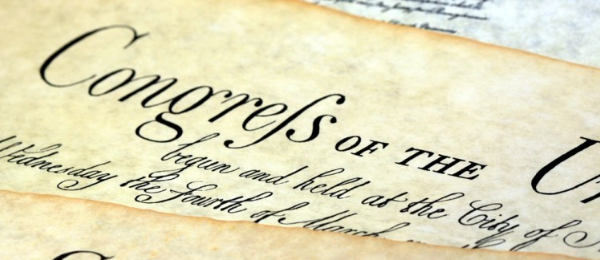 Congreſs OF THE Un
begun and held at the City of N
Wednesday the Fourth of March